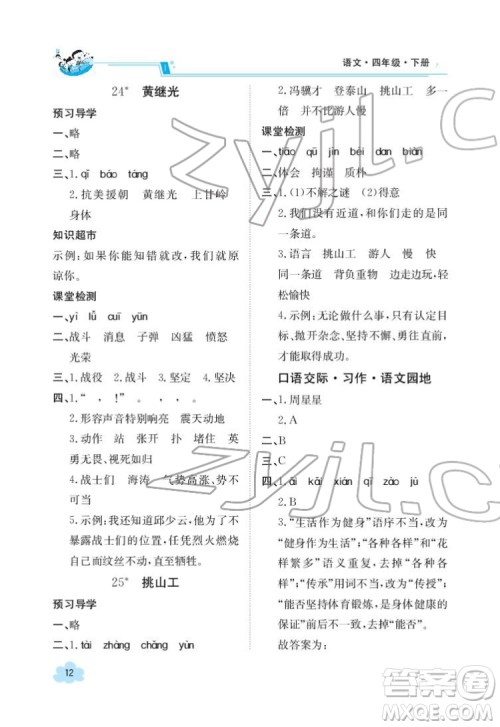 语文·四年级·下册
24* 黄继光
预习导学
一、略
二、略
三、1.qī bāo táng
2.抗美援朝 黄继光 上甘岭
身体
知识超市
示例：如果你能知错就改，我们就原
谅你。
课堂检测
一、yì lǚ cuī yūn
二、战斗 消息 子弹 凶猛 愤怒
光荣
三、1.战役 2.战斗 3.坚定 4.坚决
四、1.“ ， ！” 。 ， ，
2.形容声音特别响亮 震天动地
3.动作 站 张开 扑 堵住 英
勇无畏、视死如归
4.战士们 海涛 气势高涨、势不
可当
5.示例：我还知道邱少云，他为了不
暴露战士们的目标，任凭烈火烧
自己而纹丝不动，直至牺牲。
25* 挑山工
预习导学
一、略
二、1.tài zhàng chǎng yún
2.冯骥才 登泰山 挑山工 多一
倍 并不比游人慢
课堂检测
一、
二、体会 拘谨 质朴
三、1.(1)不解之谜 (2)得意
2.示例：我们没有近道，和你们走
的是一条道。
3.语言 挑山工 游人 慢 快
同一条道 背负重物 边玩边走，轻
松愉快
4.示例：无论做什么事，我们都要
抛开杂念、坚持不懈、脚踏实地，
才能取得成功。
口语交际·习作·语文园地
一、1.周星星
2.A
二、B
三、C
四、1.ǎi kǎi xián qī záo jù
2.B
示例：“生活作为健身”语序不当，
改为“健身作为生活”；“各种各样”和“花
样繁多”语义重复，去掉“各种各
样”；“传承”用词不当，改为“传授”；
“能否坚持不懈”前后矛盾，去掉
“能否”。
故答案为：
12
zyjl.cn
zyjl.cn